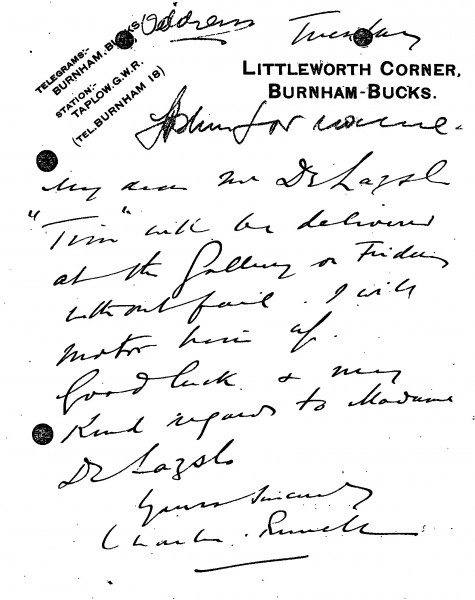 Address Tuesday
TELEGRAMS:-
BURNHAM, BUCKS.
STATION:-
TAPLOW, G.W.R.
(TEL. BURNHAM 18)
LITTLEWORTH CORNER,
BURNHAM-BUCKS.
for
My dear Mr De Laszlo
"Tim" will be delivered
at the Gallery on Friday
without fail. I will
motor him up.
Good luck & my
Kind regards to Madame
De Laszlo
Yours Sincerely
Charles Russell